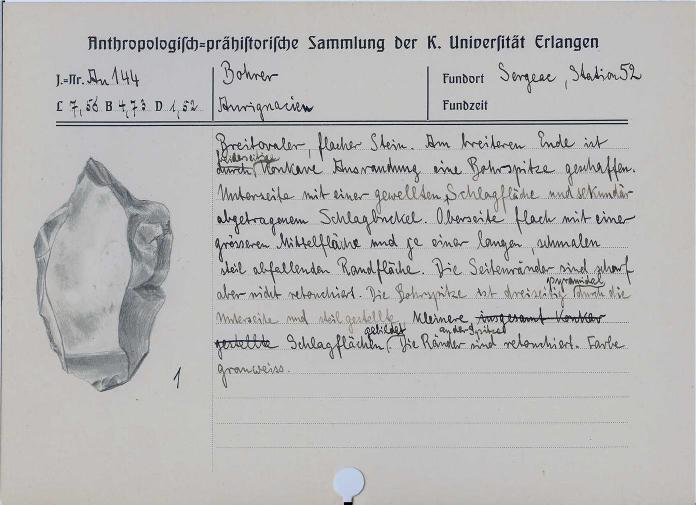 Anthropologisch=prähistorische Sammlung der K. Universität Erlangen
J.=Nr. An 144
Bohrer
Fundort Sergeac, Station 52
L 7,56 B 4,73 D 1,52
Aurignacien
Fundzeit
Breitovaler, flacher Stein. Am breiteren Ende ist
beiderseitige
durch konkave Ausrandung eine Bohrspitze geschaffen.
Unterseite mit einer gewellten Schlagfläche und sekundär
abgetragenem Schlagbuckel. Oberseite flach mit einer
grösseren Mittelfläche und je einer langen schmalen
steil abfallenden Randfläche. Die Seitenränder sind scharf
pyramidal
aber nicht retouchiert. Die Bohrspitze ist dreiseitig durch die
Unterseite und steil gestellte kleinere insgesamt konkav
gebildet an der Spitze
gestellte Schlagflächen. Die Ränder sind retouchiert. Farbe
grauweiss.
1